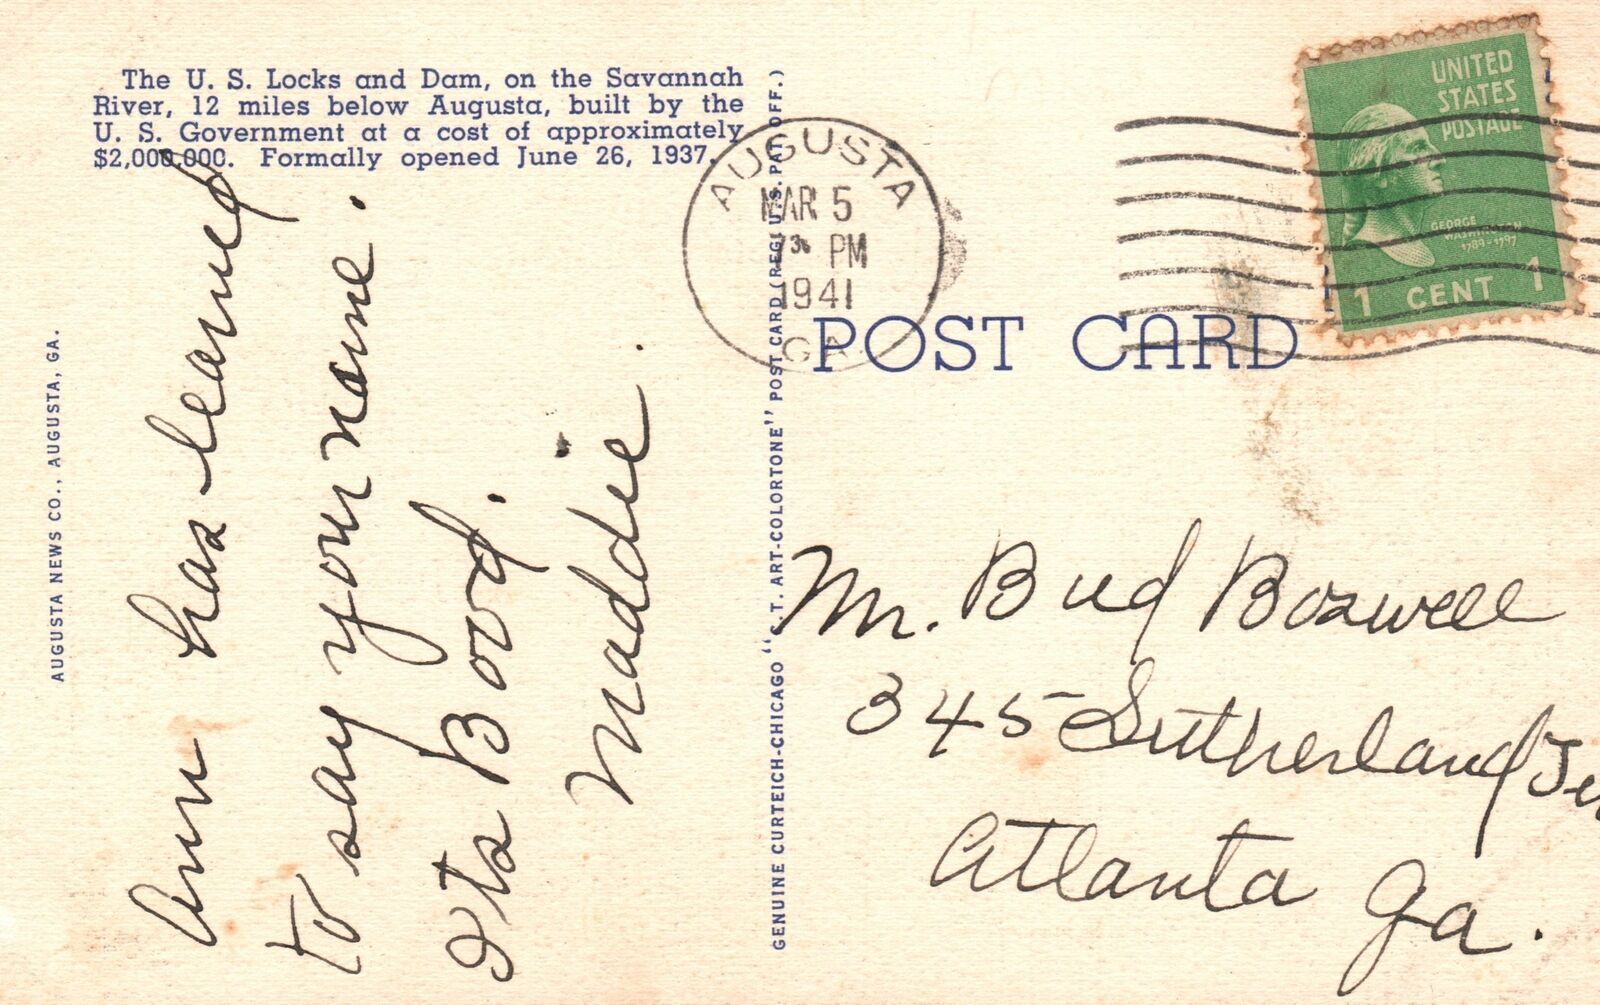 The U. S. Locks and Dam, on the Savannah
River, 12 miles below Augusta, built by the
U. S. Government at a cost of approximately
$2,000,000. Formally opened June 26, 1937.
AUGUSTA NEWS CO., AUGUSTA, GA.
Ann has learned
to say your name.
Its Bood.
Maddie.
GENUINE CURTEICH-CHICAGO "C.T. ART-COLORTONE" POST CARD (REG. U.S. PAT. OFF.)
AUGUSTA
MAR 5
PM
1941
GA.
UNITED
STATES
POSTAGE
GEORGE
WASHINGTON
1789-1797
1 CENT 1
POST CARD
Mr. Bud Boswell
345 Sutherland Ter
Atlanta Ga.